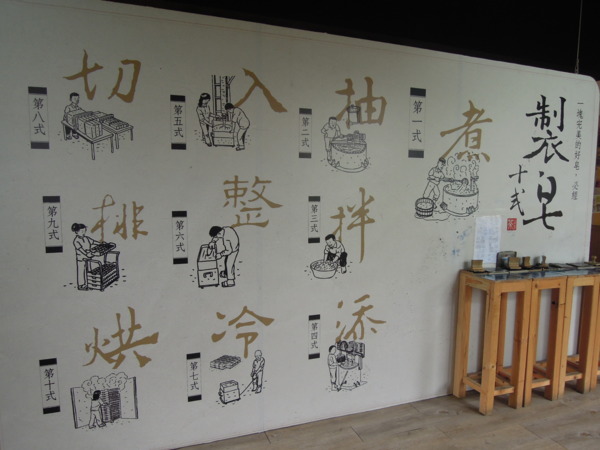 一塊完美的好皂，必經
製皂十式
第一式
煮
第二式
抽
第三式
拌
第四式
添
第五式
入
第六式
整
第七式
冷
第八式
切
第九式
排
第十式
烘